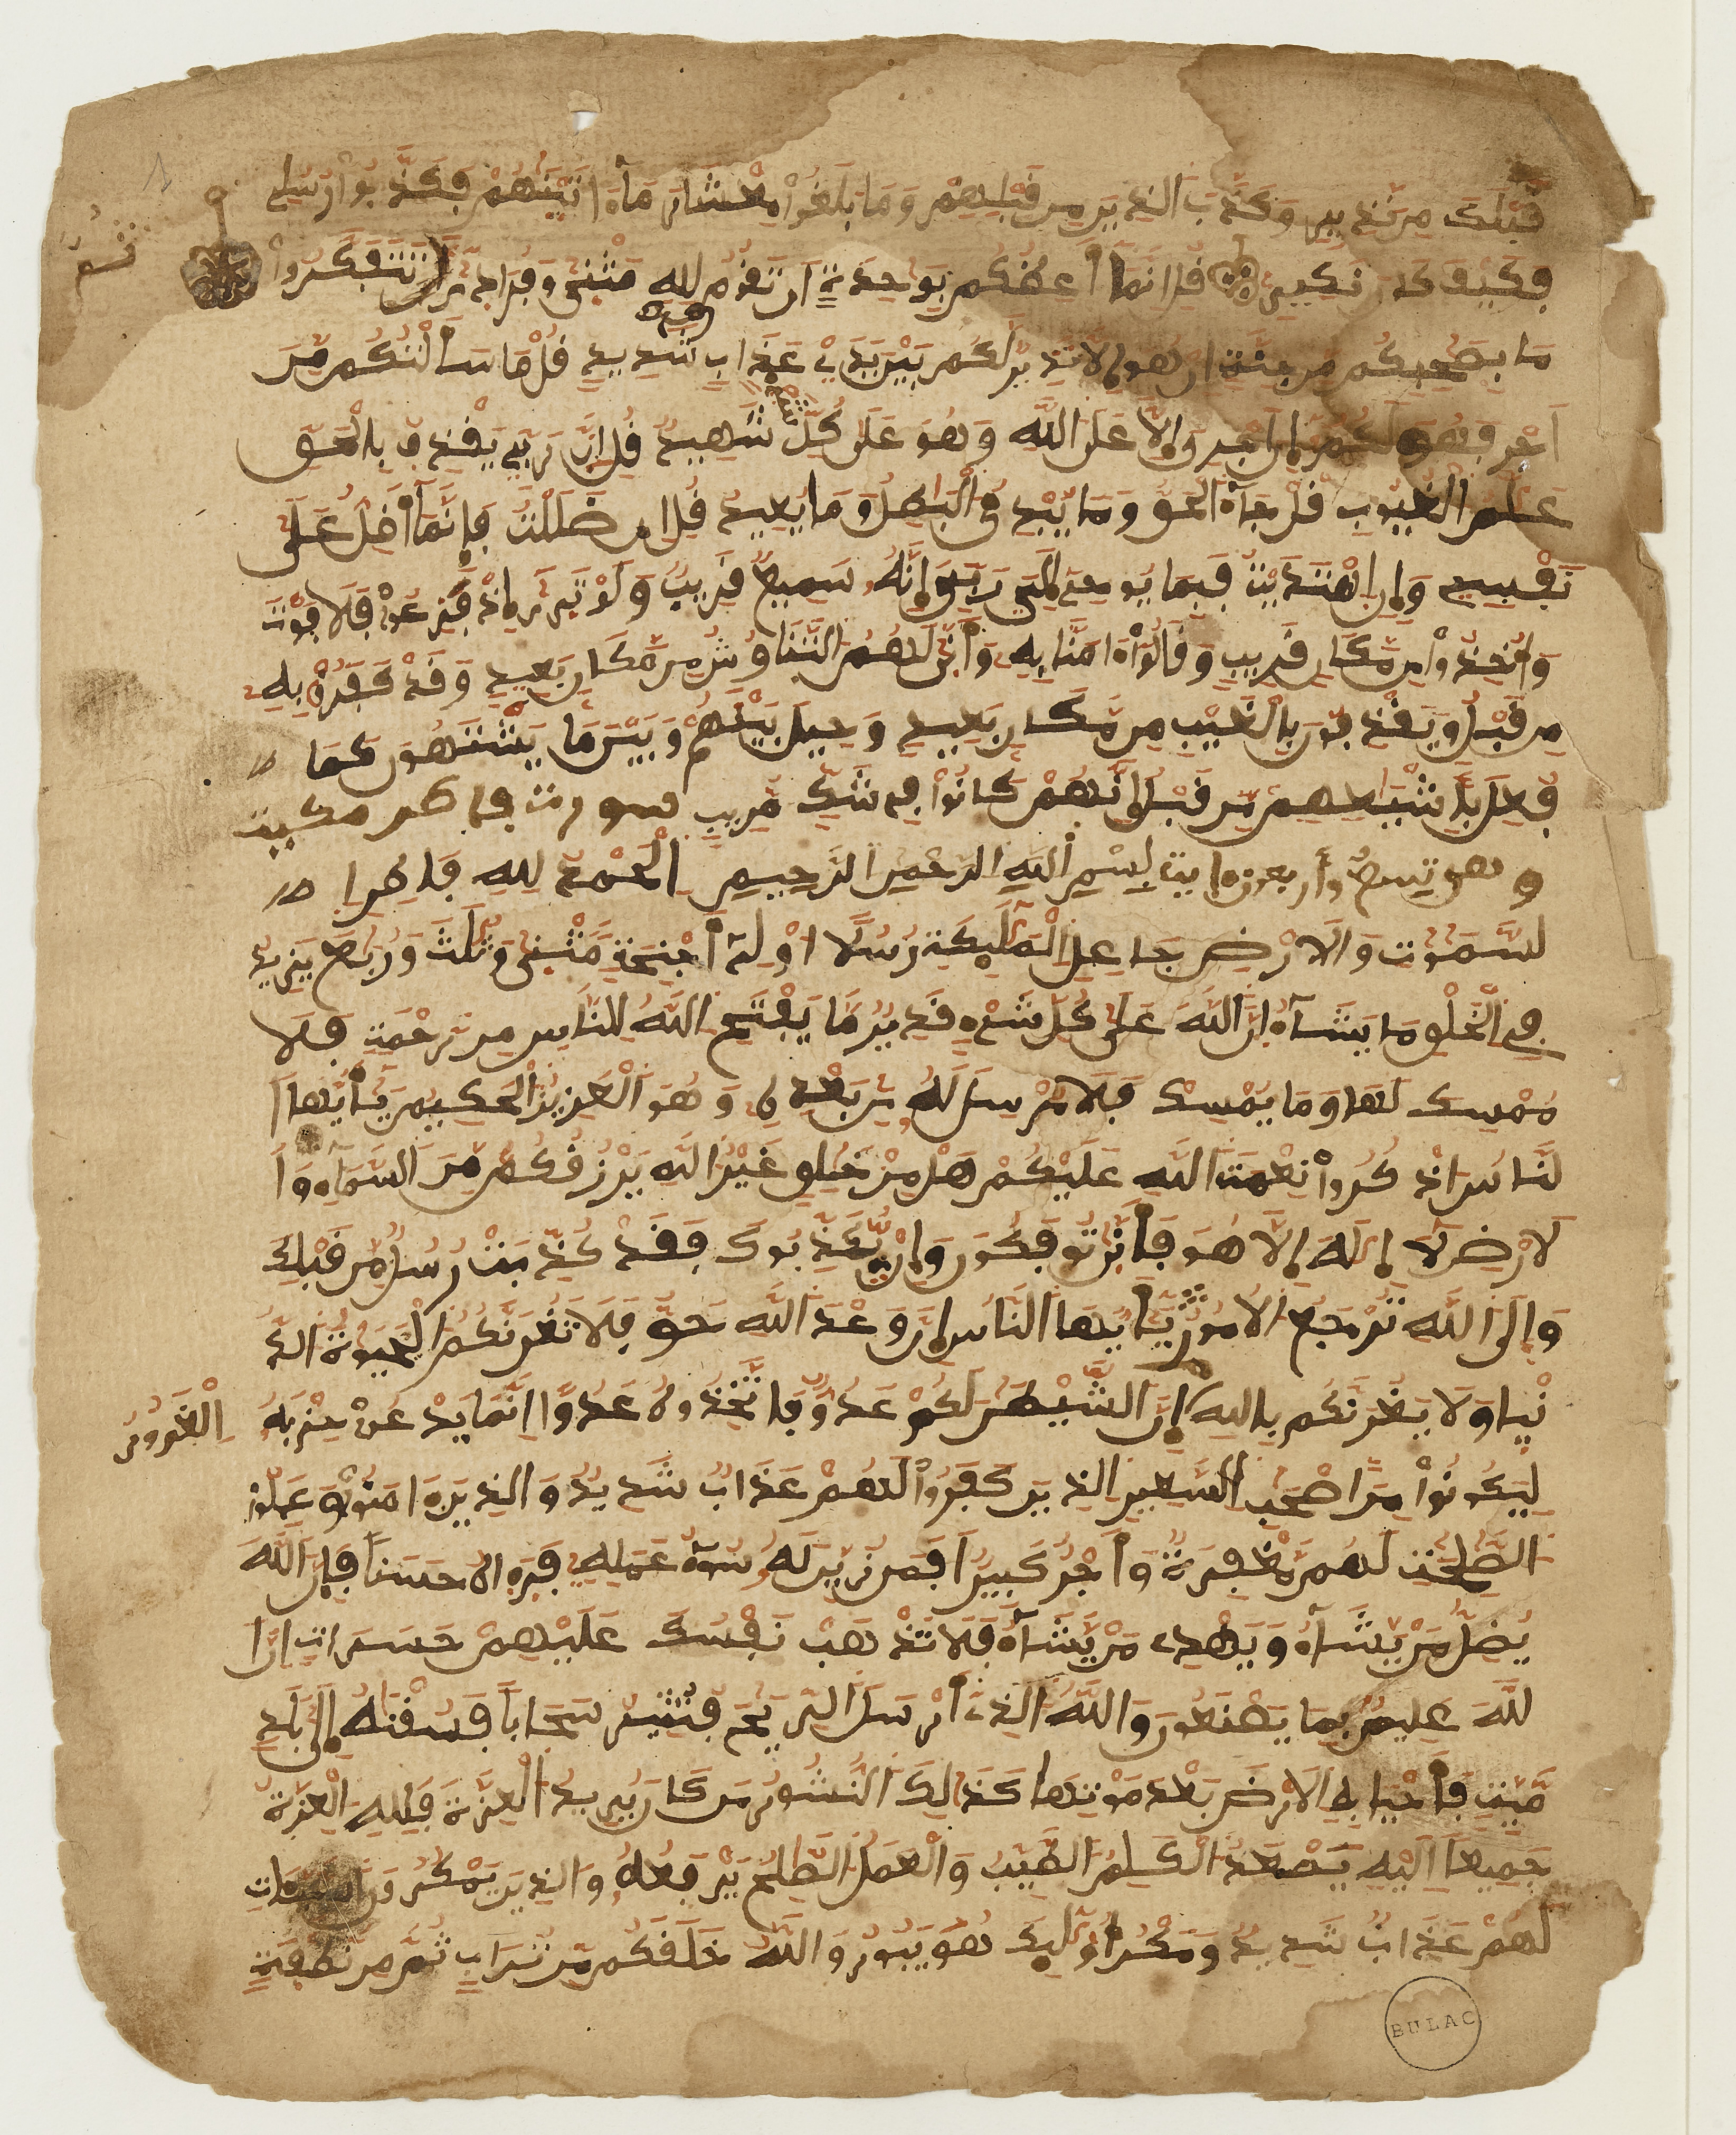 قبلك من نذير وكذب الذين من قبلهم وما بلغوا معشار ما ءاتينهم فكذبوا رسلي
فكيف كان نكير قل انما أعظكم بوحدة ان تقوموا لله مثنى وفرادى ثم تتفكروا
ما بصحبكم من جنة ان هو إلا نذير لكم بين يدي عذاب شديد قل ما سألتكم من
أجر فهو لكم إن أجري إلا على الله وهو على كل شيء شهيد قل إن ربي يقذف بالحق
علم الغيوب قل جاء الحق وما يبدئ البطل وما يعيد قل إن ضللت فإنما أضل على
نفسي وإن اهتديت فبما يوحي إلي ربي إنه سميع قريب ولو ترى إذ فزعوا فلا فوت
وأخذوا من مكان قريب وقالوا ءامنا به وأنى لهم التناوش من مكان بعيد وقد كفروا به
من قبل ويقذفون بالغيب من مكان بعيد وحيل بينهم وبين ما يشتهون كما
فعل بأشيعهم من قبل إنهم كانوا في شك مريب سورت فاطر مكية
وهي تسع وأربعون ءاية بسم الله الرحمن الرحيم الحمد لله فاطر ا
لسموت والارض جاعل الملئكة رسلا اولي أجنحة مثنى وثلث وربع يزيد
في الخلق ما يشاء إن الله على كل شيء قدير ما يفتح الله للناس من رحمة فلا
ممسك لها وما يمسك فلا مرسل له من بعده وهو العزيز الحكيم يأيها ا
لناس اذكروا نعمت الله عليكم هل من خلق غير الله يرزقكم من السماء وا
لارض لا إله إلا هو فأنى توفكون وإن يكذبوك فقد كذبت رسل من قبلك
وإلى الله ترجع الامور يأيها الناس إن وعد الله حق فلا تغرنكم الحيوة الد
نيا ولا يغرنكم بالله إن الشيطن لكم عدو فاتخذوه عدوا انما يدعوا حزبه
الغرور
ليكونوا من اصحب السعير الذين كفروا لهم عذاب شديد والذين ءامنوا وعملوا
الصلحت لهم مغفرة وأجر كبير أفمن زين له سوء عمله فرءاه حسنا فإن الله
يضل من يشاء ويهدي من يشاء فلا تذهب نفسك عليهم حسرات إن ا
لله عليم بما يصنعون والله الذي أرسل الريح فتثير سحابا فسقنه إلى بلد
ميت فأحيينا به الارض بعد موتها كذلك النشور من كان يريد العزة فلله العزة
جميعا اليه يصعد الكلم الطيب والعمل الصلح يرفعه والذين يمكرون السيئات
لهم عذاب شديد ومكر أولئك هو يبور والله خلقكم من تراب ثم من نطفة
BULAC